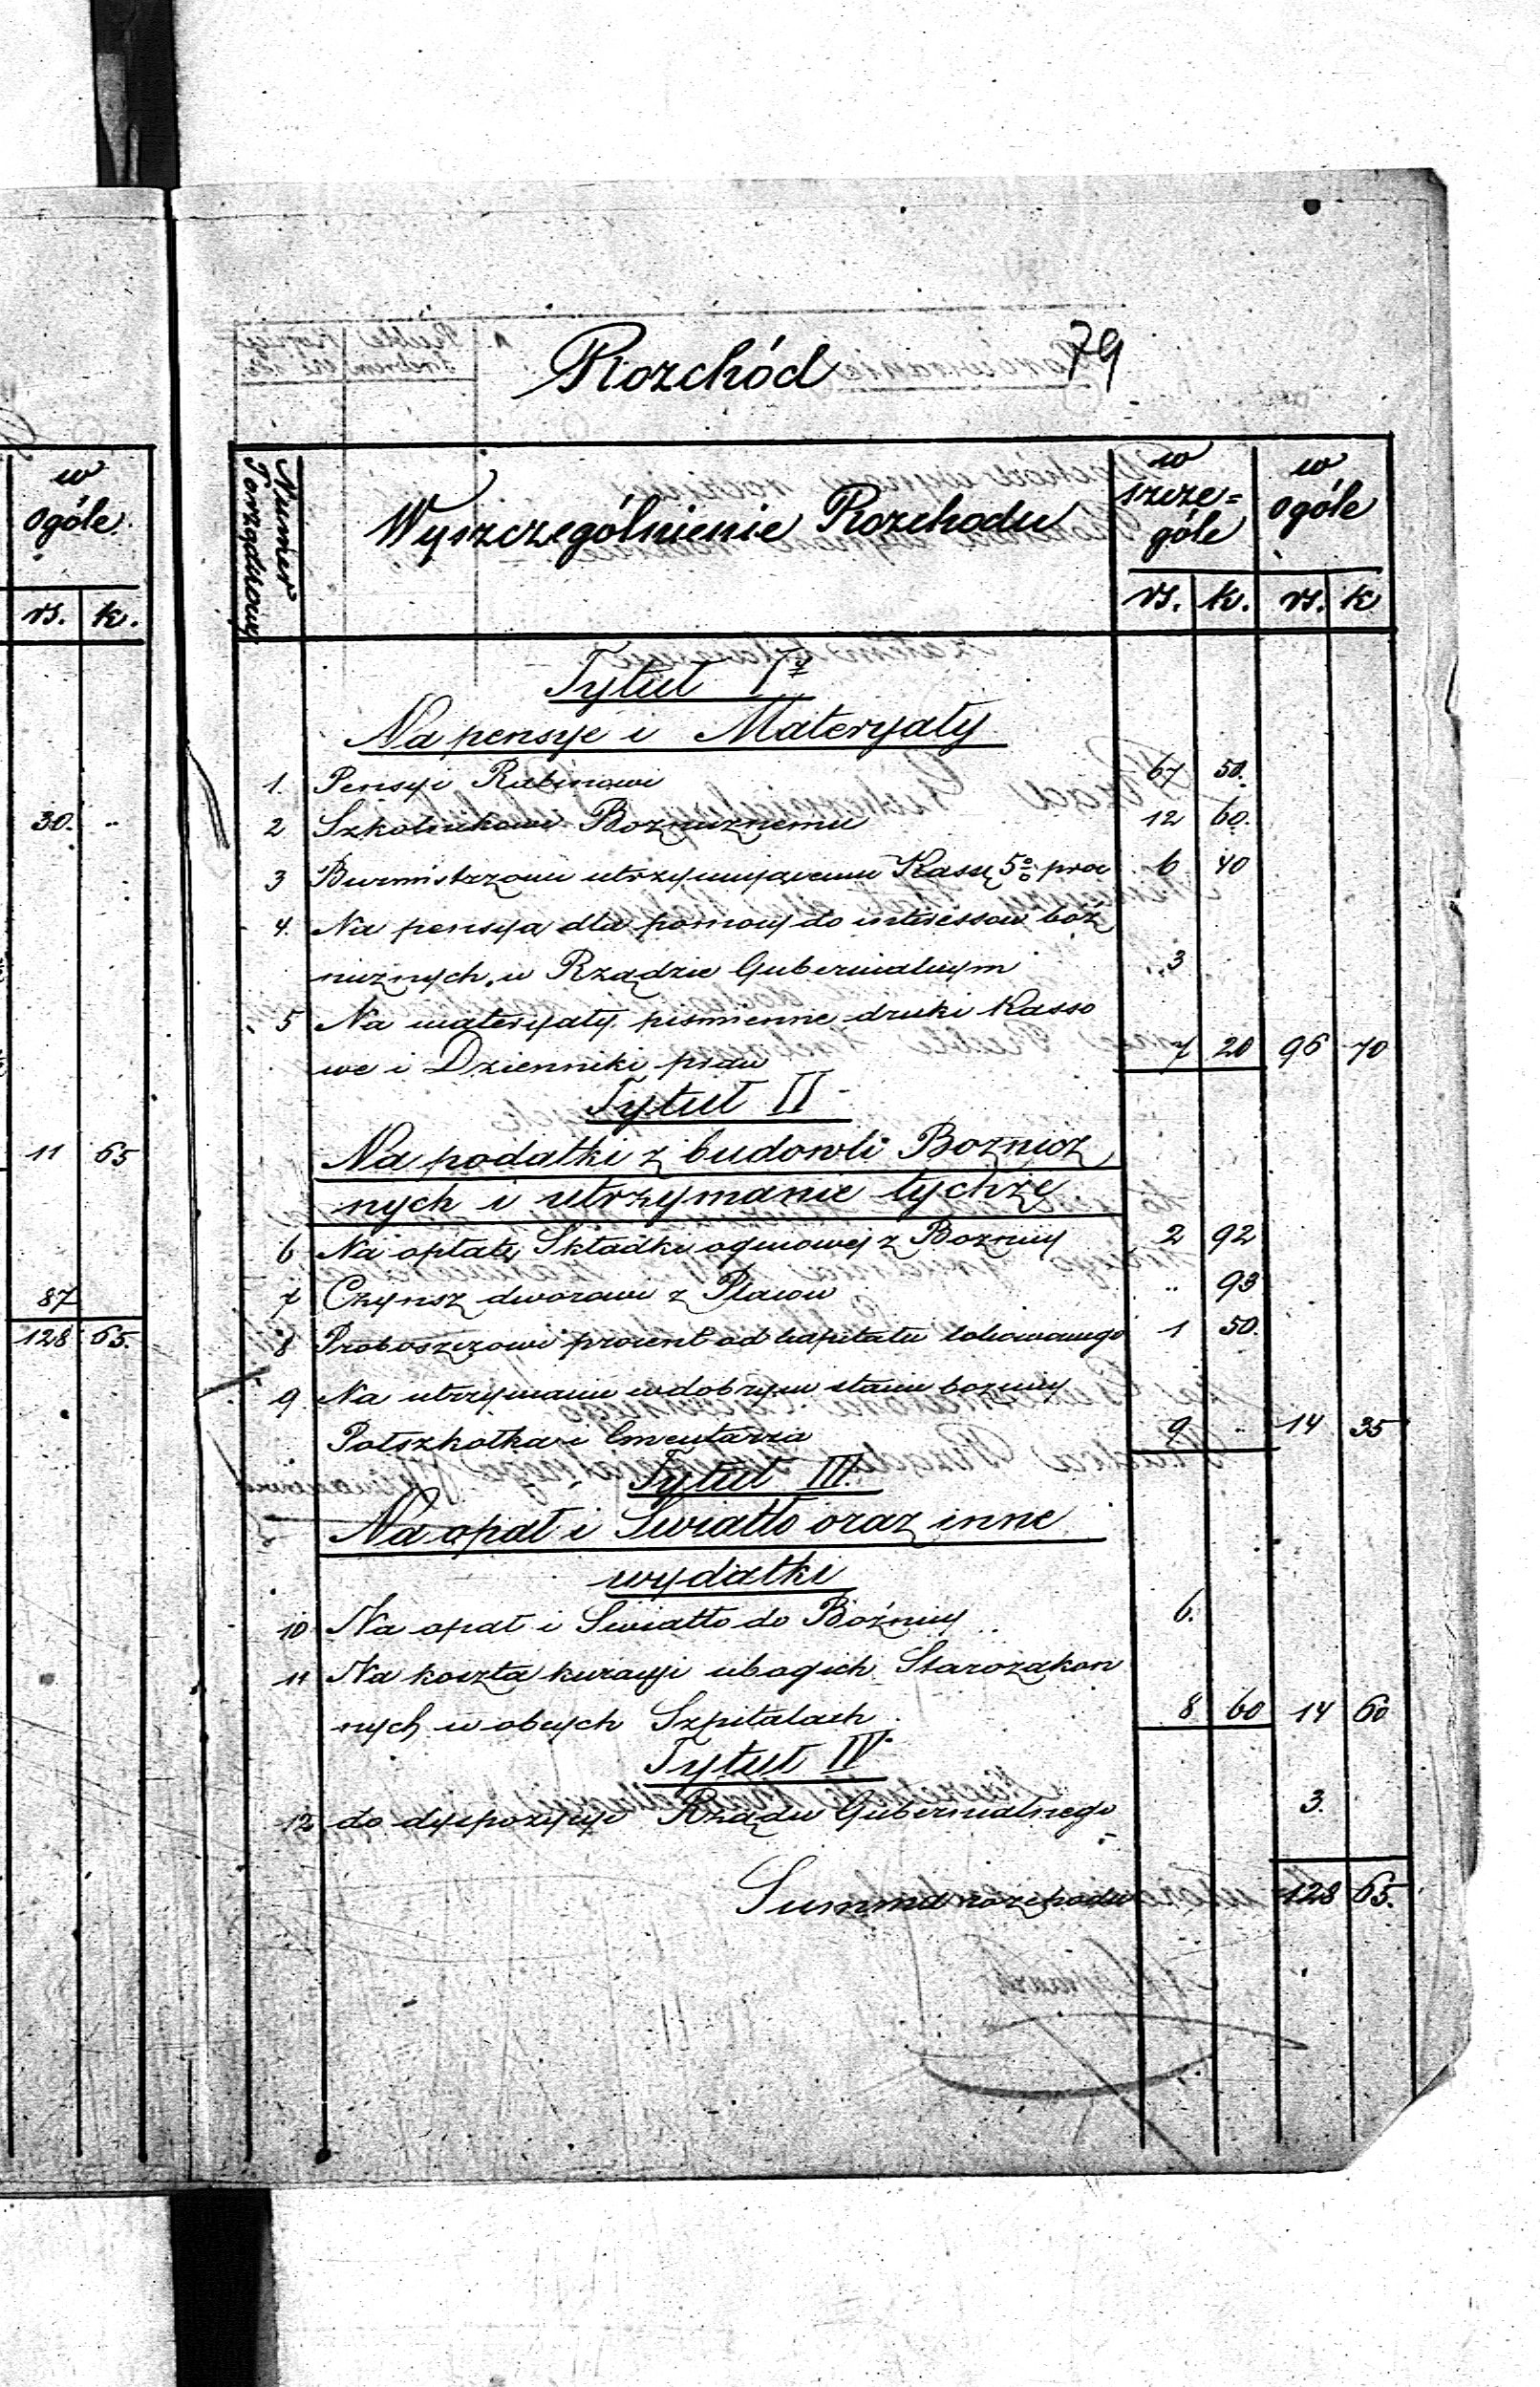 79
Rozchód
w
ogóle.
rs. k.
30. "
11 65
87
128 65.
Numer Porządkowy
Wyszczególnienie Rozchodu
w szcze=
góle
w
ogóle
rs. k. rs. k
Tytuł I
Na pensye i Materyały
1. Pensyi Rabinowi 67 50.
2 Szkolnikowi Boznicznemu 12 60.
3 Burmistrzowi utrzymującemu Kassę 5% proc 6 40
4. Na pensyą dla pomocy do interessow boź
nicznych w Rządzie Gubernialnym " 3
5 Na materyały piśmienne druki Kasso
we i Dzienniki praw 7 20 96 70
Tytuł II
Na podatki z budowli Boznicz
nych i utrzymanie tychże
6 Na opłatę Składki ogniowej z Boznicy 2 92
7 Czynsz dworowi z Placow " 93
8 Proboszczowi procent od kapitału lokowanego 1 50.
9 Na utrzymanie w dobrym stanie boznicy
Potszkolka i Cmentarza 9 " 14 35
Tytuł III.
Na opał i Swiatło oraz inne
wydatki
10 Na opał i Swiatło do Boźnicy 6.
11 Na koszta kuracyi ubogich Starozakon
nych w obcych Szpitalach 8 60 14 60
Tytuł IV
12 do dyspozycyi Rządu Gubernialnego 3.
Summa rozchodu 128 65.